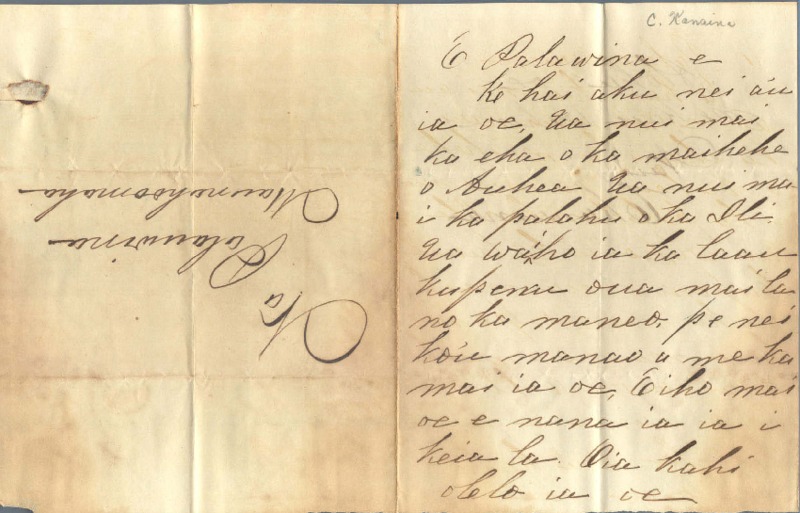 Na
Palawina
Maunahoomaha
C. Kanaina
E Palawina e
Ke hai aku nei au
ia oe, Ua nui mai
ka eha o ka maihehe
o Auhea Ua nui ma
i ka palahu o ka Ili.
Ua waiho ia ka laau
kupenu oua mai la
no ka maneo, pe nei
ko'u manao a me ka
mai ia oe, E iho mai
oe e nana ia ia i
keia la. Oia kahi
olelo ia oe